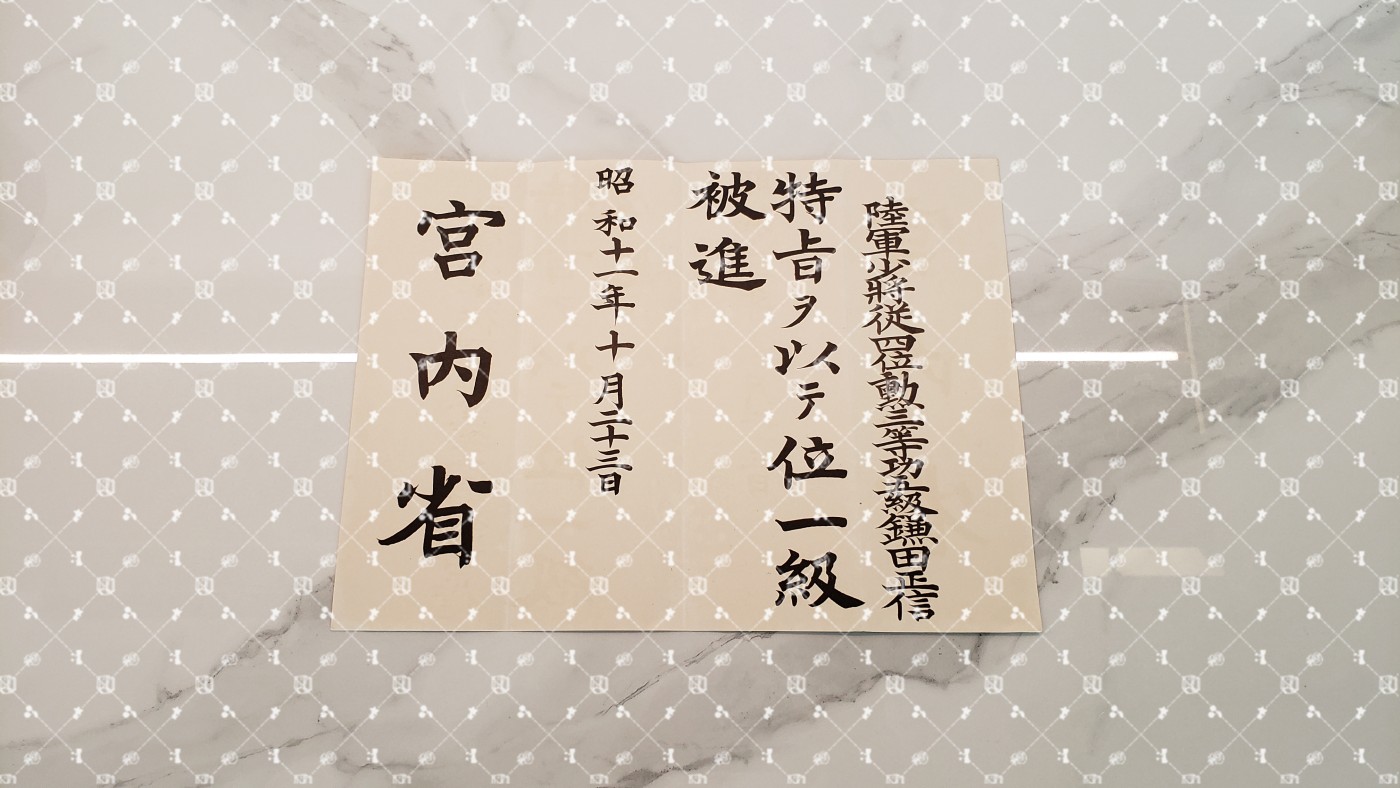 陸軍少將従四位勲三等功五級鎌田正信
特旨ヲ以テ位一級
被進
昭和十一年十月二十三日
宮内省